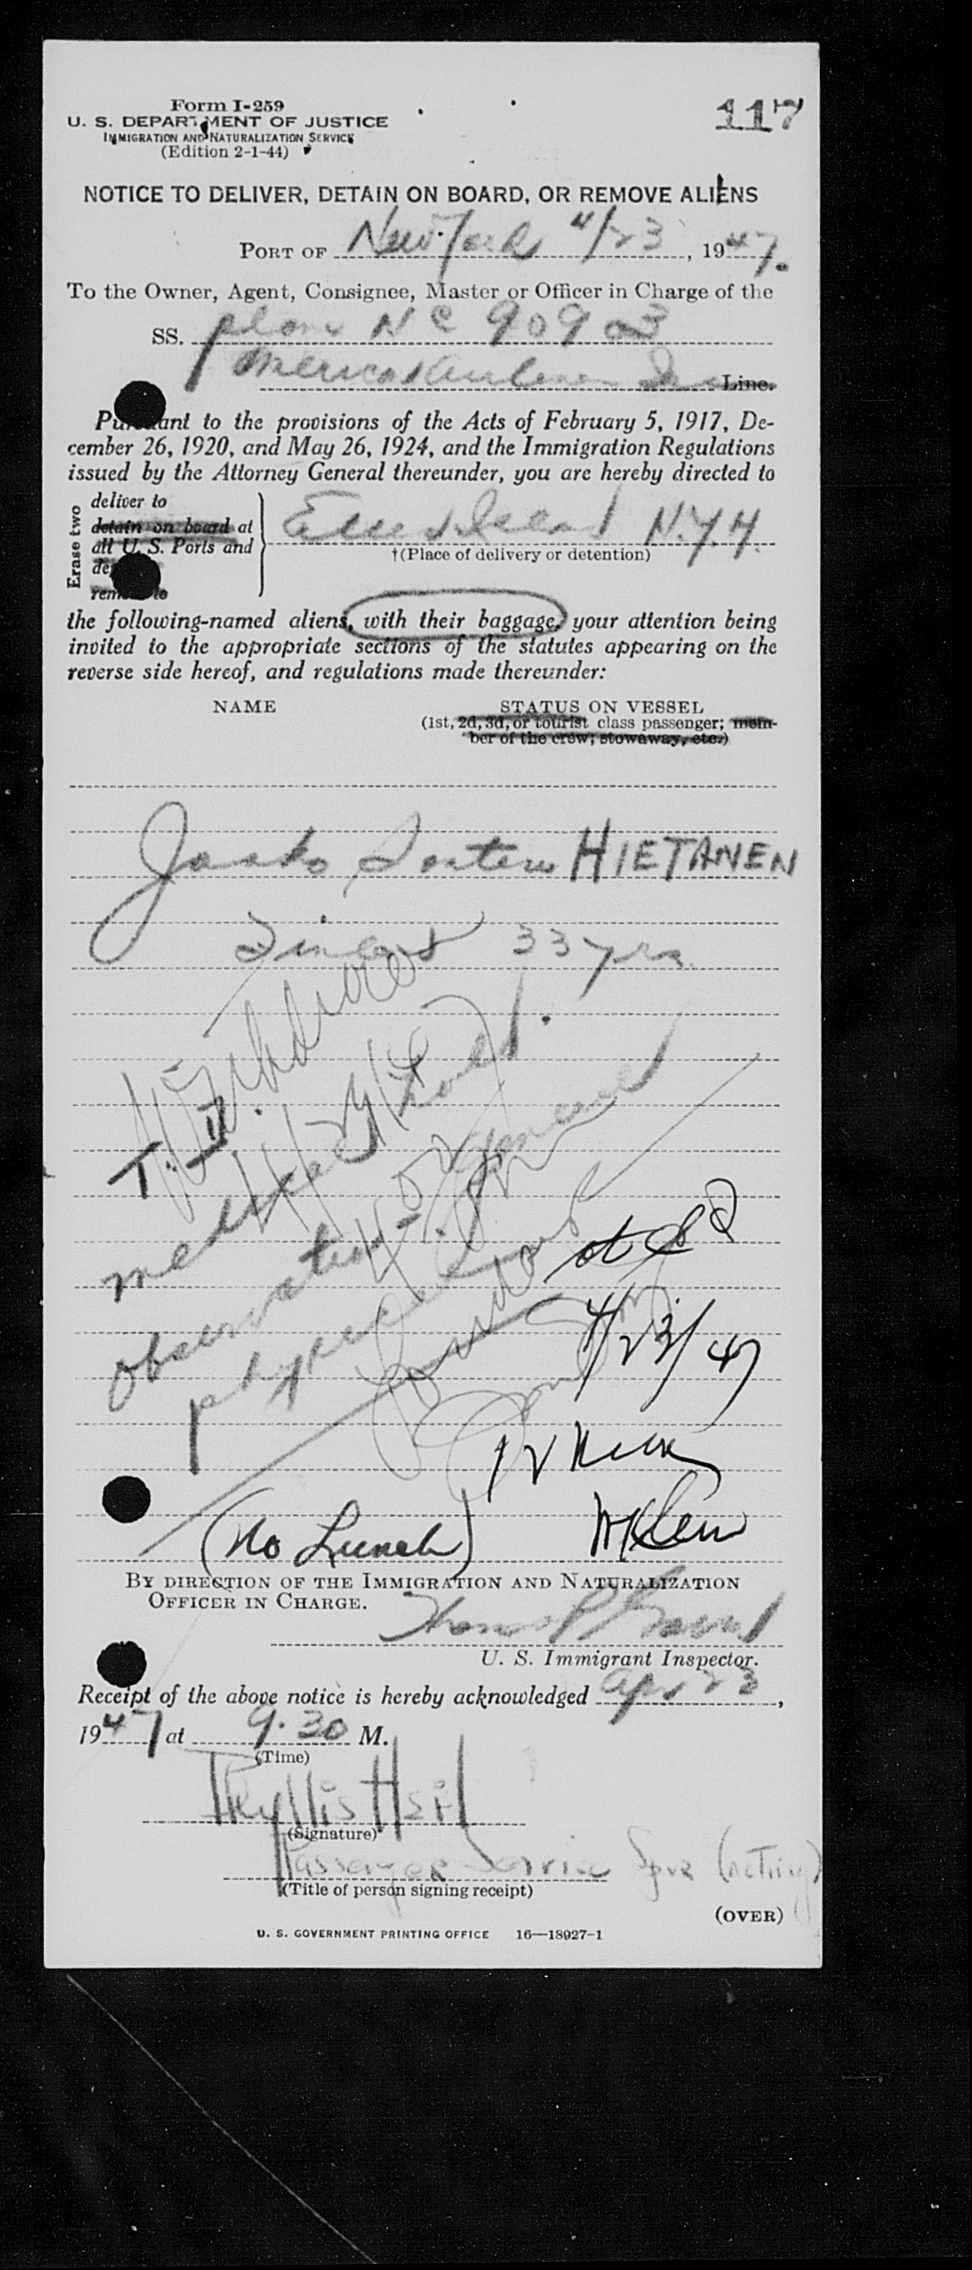 Form I-259
117
U. S. DEPARTMENT OF JUSTICE
IMMIGRATION AND NATURALIZATION SERVICE
(Edition 2-1-44)
NOTICE TO DELIVER, DETAIN ON BOARD, OR REMOVE ALIENS
PORT OF New York 4/23, 1947.
To the Owner, Agent, Consignee, Master or Officer in Charge of the
SS. plane NC 90903
American Airlines Inc Line.
Pursuant to the provisions of the Acts of February 5, 1917, De-
cember 26, 1920, and May 26, 1924, and the Immigration Regulations
issued by the Attorney General thereunder, you are hereby directed to
Erase two
deliver to
detain on board at
all U. S. Ports and
remove to
Ellis Island N.Y.H.
†(Place of delivery or detention)
the following-named aliens, with their baggage, your attention being
invited to the appropriate sections of the statutes appearing on the
reverse side hereof, and regulations made thereunder:
NAME STATUS ON VESSEL
(1st, 2d, 3d, or tourist class passenger; mem-
ber of the crew; stowaway, etc.)
Jaako HIETANEN
33 yrs.
T. D.
medical hold.
observation - general
physical
at
4/23/47
(No Lunch)
BY DIRECTION OF THE IMMIGRATION AND NATURALIZATION
OFFICER IN CHARGE.
Thomas P
U. S. Immigrant Inspector.
Receipt of the above notice is hereby acknowledged Apr 23,
1947 at 9.30 M.
(Time)
Phyllis
(Signature)
Passenger Service Spvr (acting)
(Title of person signing receipt)
(OVER)
U. S. GOVERNMENT PRINTING OFFICE 16—18927-1